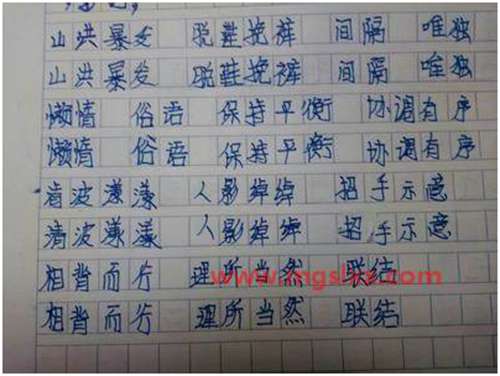 山洪暴发 脱鞋挽裤 间隔 唯独
山洪暴发 脱鞋挽裤 间隔 唯独
懒惰 俗语 保持平衡 协调有序
懒惰 俗语 保持平衡 协调有序
清波漾漾 人影绰绰 招手示意
清波漾漾 人影绰绰 招手示意
相背而行 理所当然 联结
www.mgslxs.com
相背而行 理所当然 联结